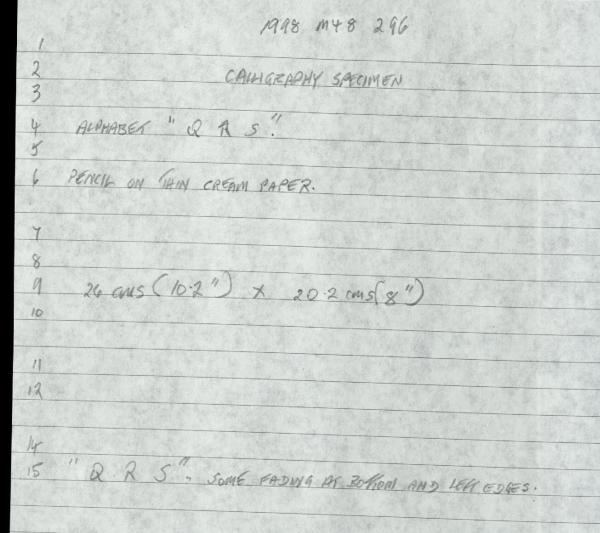 1998 M48 296
1
2 CALLIGRAPHY SPECIMEN
3
4 ALPHABET "Q R S".
5
6 PENCIL ON THIN CREAM PAPER.
7
8
9 26 cms (10.2") X 20.2 cms (8")
10
11
12
14
15 "Q R S". SOME FADING AT BOTTOM AND LEFT EDGES.